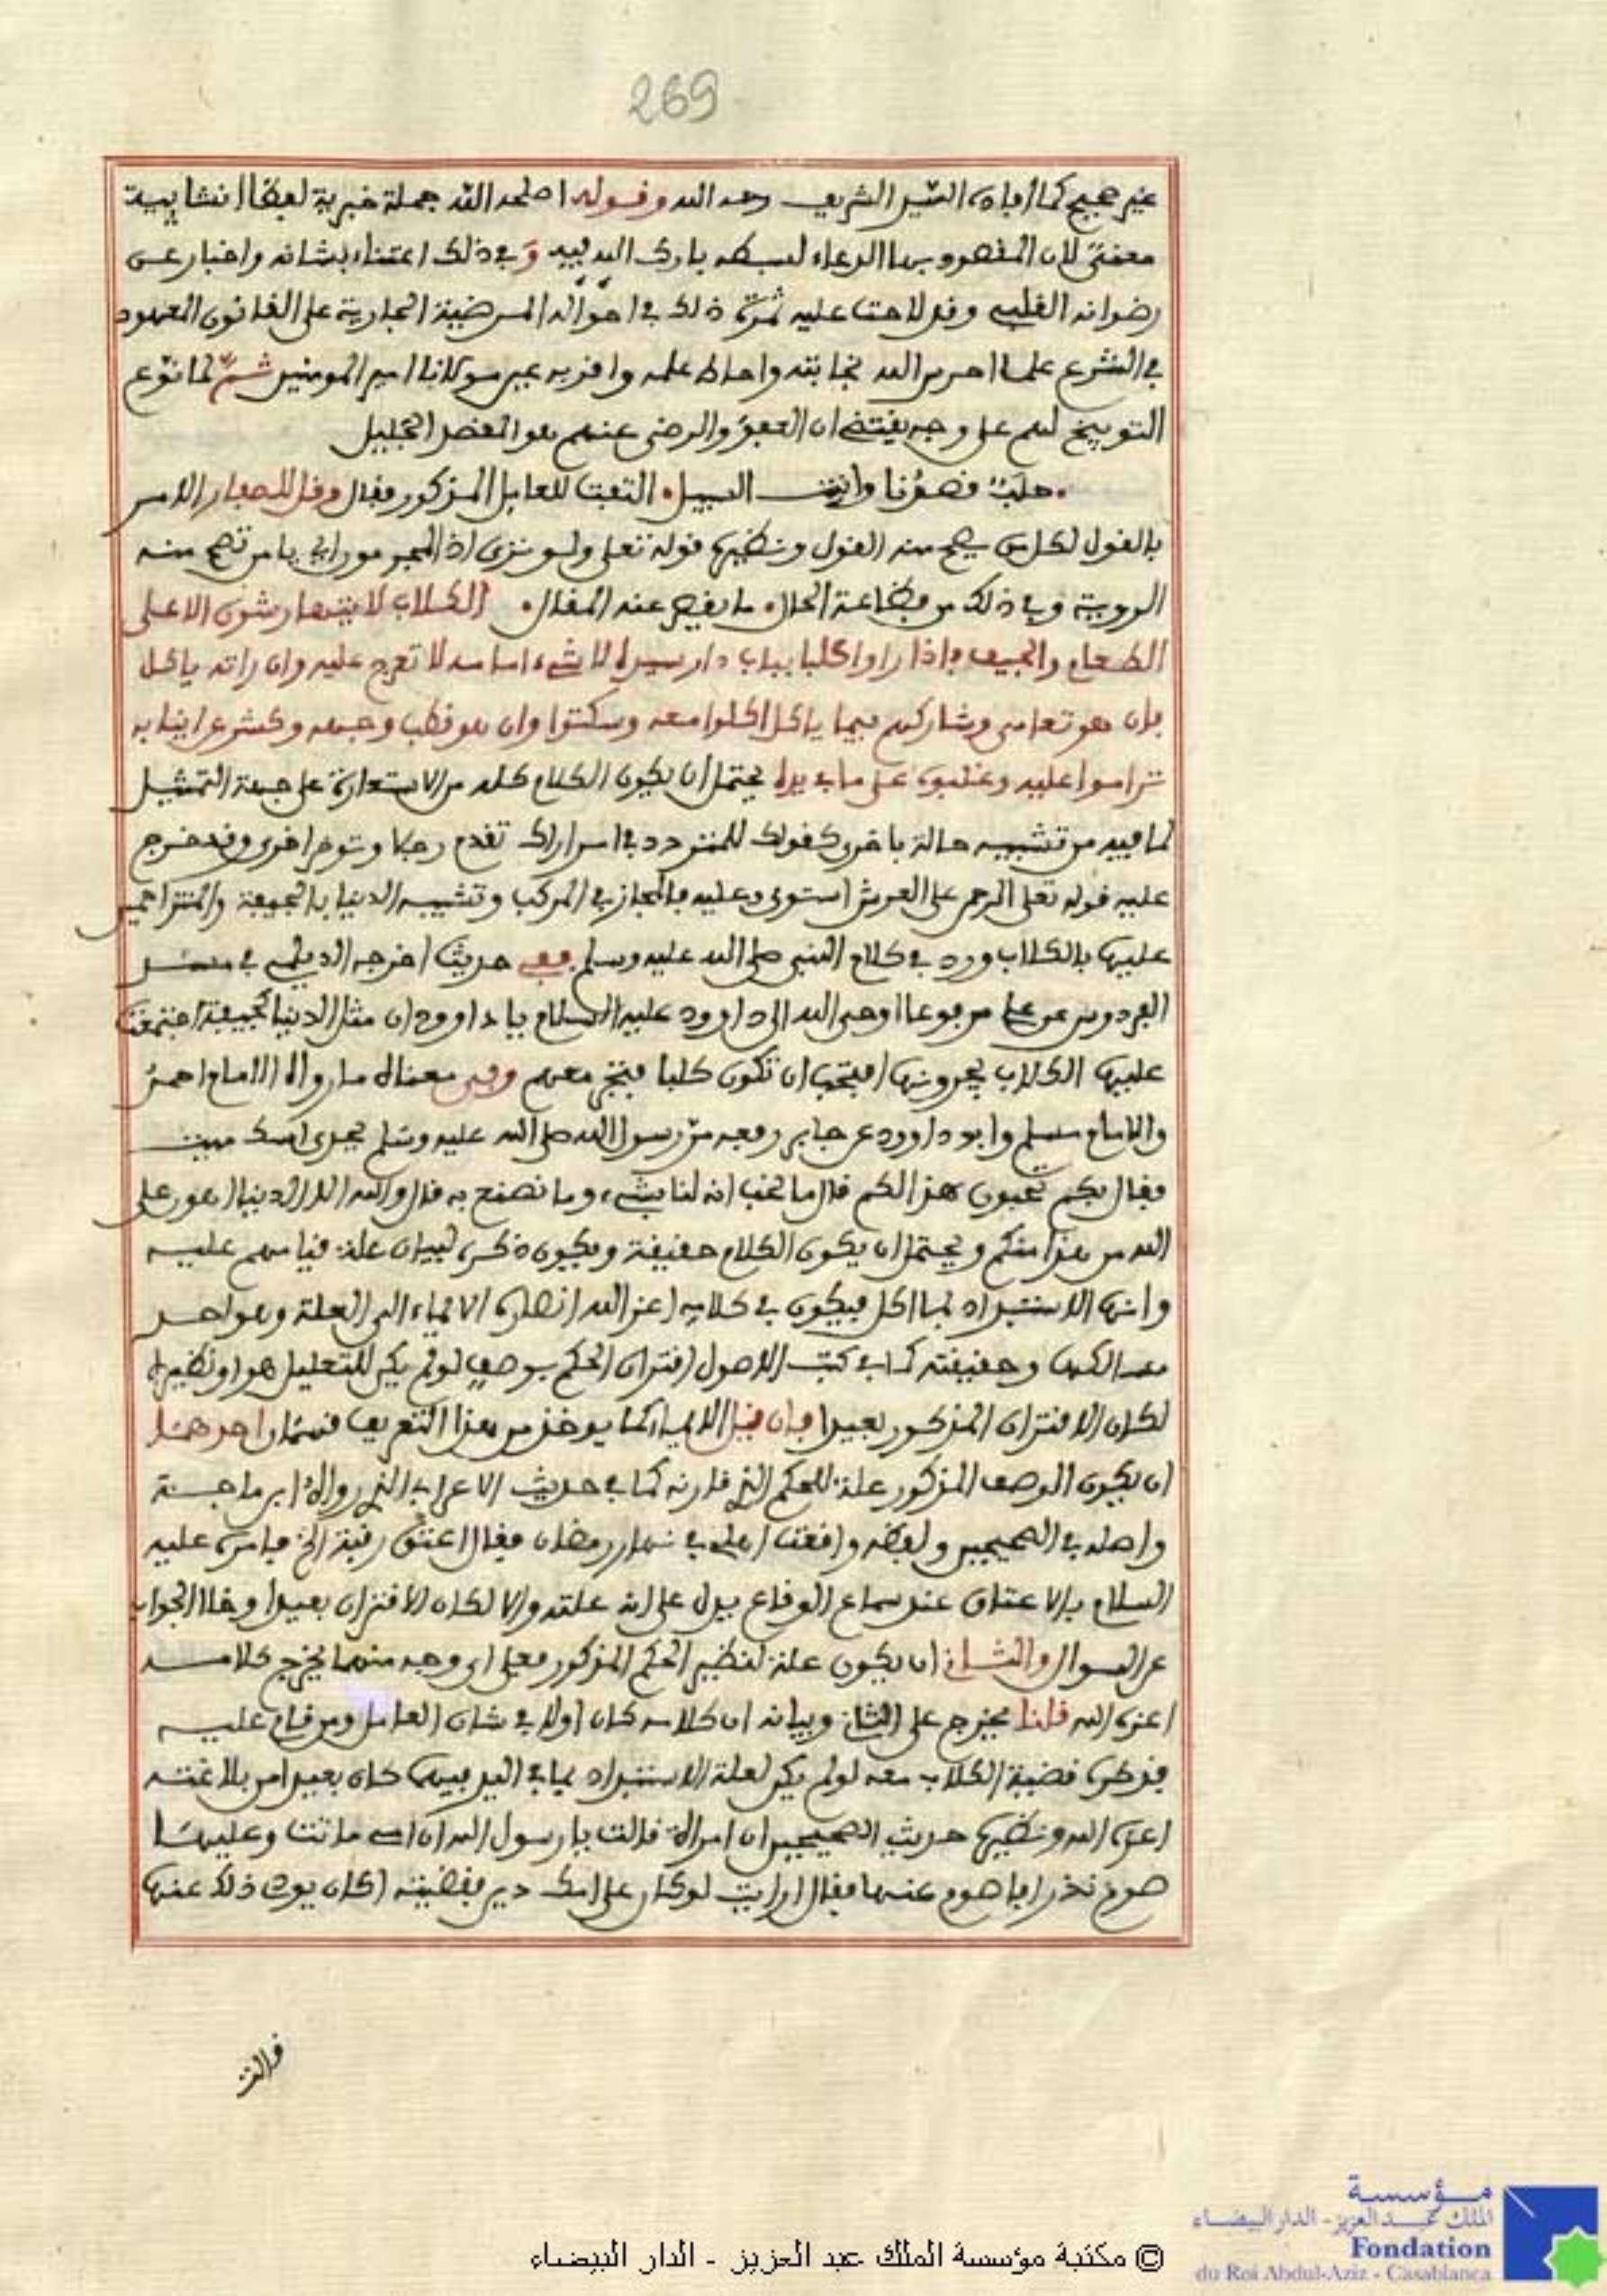 269
غير صحيح كما أفاده السير الشريف رحمه الله وقوله اصلحه الله جملة خبرية لفظا انشايية
معنى لان المقصود بها الدعاء لسبطه بارك الله فيه وفي ذلك اعتناء بشانه واخبار عن
رضوانه القلبي وقد لاحت عليه ثمرة ذلك في احواله المرضية الجارية على القانون المعهود
في الشرع علما احرس الله نجابته واحاط علمه واقر به عين مولانا امير المومنين ثم لما نوع
التوبيخ لهم على وجه يقتضي ان العفو والرضى عنهم هو المقصد الجليل
حلب قصدنا وانت السبيل التفت للعامل المذكور فقال وقل للصفار الامر
بالقول لكل من يصح منه القول ونظيرها قوله تعلى ولو ترى اذ المجرمون اي يا من تصح منه
الروية وفي ذلك من فظاعة الحال ما يقصر عنه المقال الكلاب لا يتهارشون الا على
الطعام والجيف فاذا راوا كلبا بباب دار سيده لا شيء امامه لا تعرج عليه وان راته ياكل
فان هو تعامى وشاركهم فيما ياكل اكلوا معه وسكتوا وان هو قطب وجهه وكشر عن انيابه
تراموا عليه وغلبوه على ما بيده يحتمل ان يكون الكلام كله من الاستعارة على جهة التمثيل
لما فيه من تشبيه حالة باخرى كقولك للمتردد في امر اراك تقدم رجلا وتوخر اخرى وقد خرج
عليه قوله تعلى الرحمن على العرش استوى وعليه فالمجاز في المركب وتشبيه الدنيا بالجيفة والمتزاحمين
عليها بالكلاب ورد في كلام النبي صلى الله عليه وسلم ففي حديث اخرجه الديلمي في مسند
الفردوس عن علي مرفوعا اوحى الله الى داوود عليه السلام يا داوود ان مثل الدنيا كجيفة اجتمعت
عليها الكلاب يجرونها افتحب ان تكون كلبا فتجر معهم وفي معناه ما رواه الامام احمد
والامام مسلم وابو داوود عن جابر رفعه مر رسول الله صلى الله عليه وسلم بجدي اسك ميت
فقال ايكم تحبون هذا لكم قال ما نحب انه لنا بشيء وما نصنع به قال والله للدنيا اهون على
الله من هذا منكم ويحتمل ان يكون الكلام حقيقة ويكون ذكره لبيان علة قيامهم عليه
وانها الاستبداد بما اكل فيكون في كلامه اعز الله انصاره الايماء الى العلة وهو احد
مسالكها وحقيقته كما في كتب الاصول اقتران الحكم بوصف لو لم يكن للتعليل هو او نظيره
لكان الاقتران المذكور بعيدا فان قيل الايماء كما يوخذ من هذا التعريف قسمان احدهما
ان يكون الوصف المذكور علة للحكم الذي قارنه كما في حديث الاعرابي الذي رواه ابن ماجة
واصله في الصحيحين ولفظه واقعت اهلي في نهار رمضان فقال اعتق رقبة الخ فامره عليه
السلام بالاعتاق عند سماع الوقاع يدل على انه علته والا لكان الاقتران بعيدا وخلا الجواب
عن السوال والثاني ان يكون علة لنظير الحكم المذكور فعلى اي وجه منهما يخرج كلامه
اعزه الله قلنا يخرج على الثاني وبيانه ان كلامه كان اولا في شان العامل ومن قام عليه
فذكره قضية الكلاب معه لو لم يكن لعلة الاستبداد بما في اليد فيهما كان بعيدا من بلاغته
اعزه الله ونظيرها حديث الصحيحين ان امراة قالت يا رسول الله ان امي ماتت وعليها
صوم نذر افاصوم عنها فقال ارايت لو كان على امك دين فقضيته اكان يودي ذلك عنها
قالت
© مكتبة مؤسسة الملك عبد العزيز - الدار البيضاء
مؤسسة
الملك عبد العزيز - الدار البيضاء
Fondation
du Roi Abdul-Aziz - Casablanca